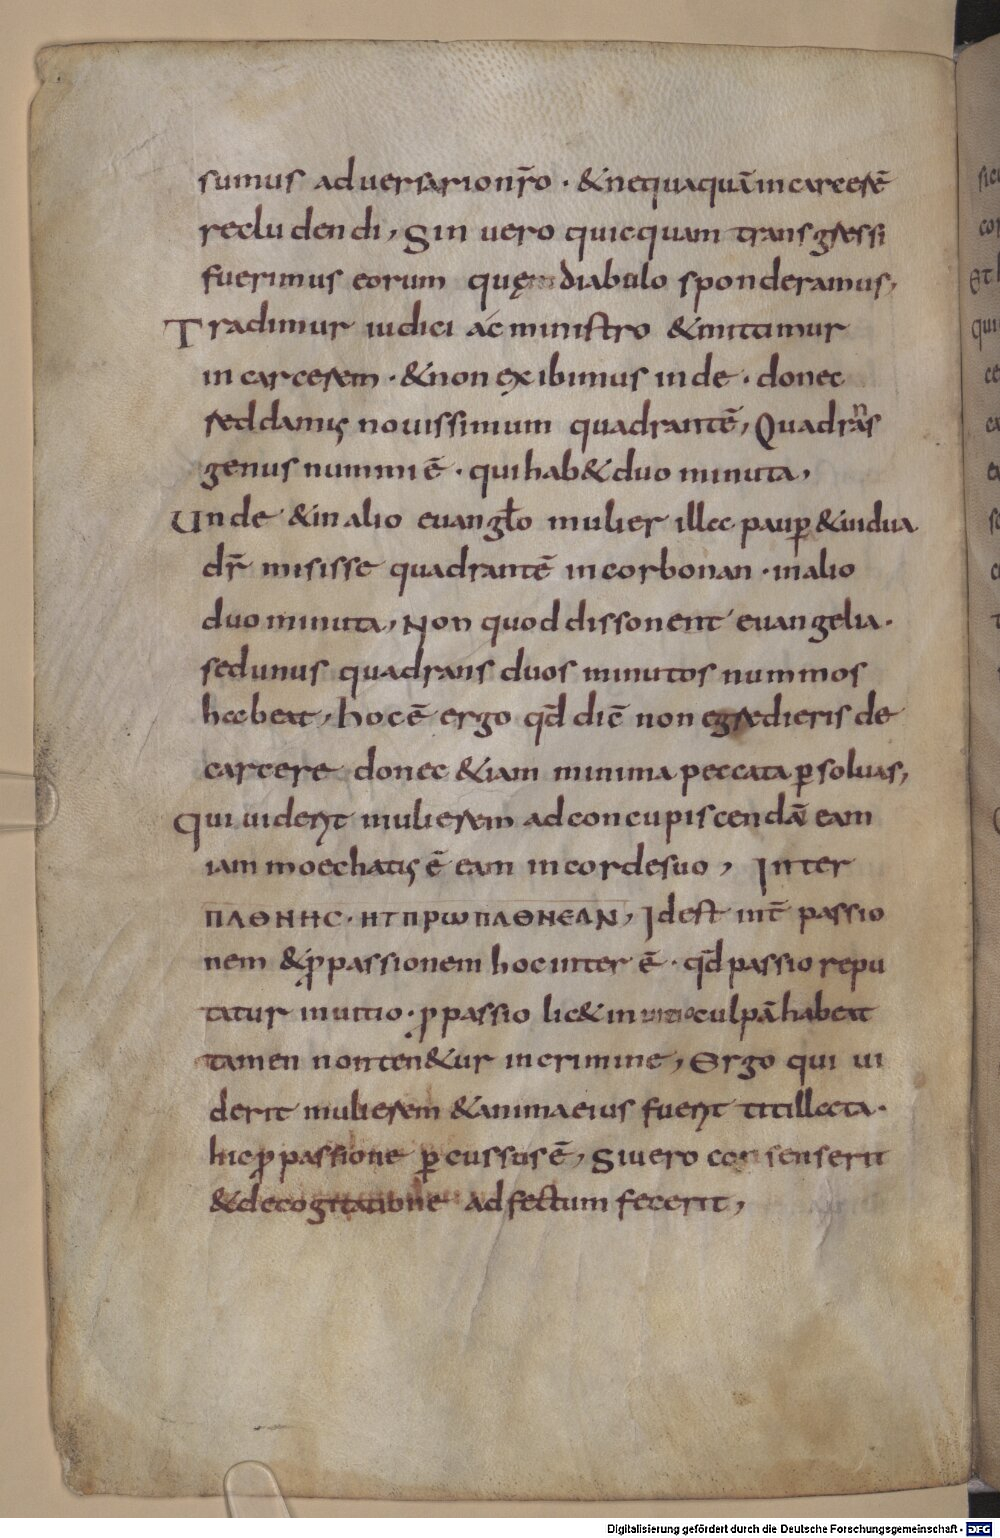 sumus aduersario nr̄o · &nequaquā in carcerē
recludendi, Sin uero quicquam transgressi
fuerimus eorum quę diabulo sponderamus,
Tradimur iudici ac ministro &mittimur
in carcerem · &non exibimus inde · donec
reddamus nouissimum quadrantē, Quadrans
genus nummi ē · qui hab& duo minuta,
Unde &in alio euangł̄o mulier illa paup &uidua
dr̄ misisse quadrantē in corbonan · in alio
duo minuta, Non quod dissonent euangelia ·
sed unus quadrans duos minutos nummos
habeat, hoc ē ergo qđ dic̄ non egredieris de
carcere donec &iam minima peccata ꝑsoluas,
Qui uiderit mulierem ad concupiscendā eam
iam moechatus ē eam in corde suo, Inter
ΠΛΘΗΗC · ΗΤ ΠΡωΠΛΘΗЄΛΝ, Id est int̄ passio
nem &ꝓpassionem hoc inter ē · qđ passio repu
tatur in uitio · ꝓpassio lic& in uitio culpā habeat
tamen non ten&ur in crimine, Ergo qui ui
derit mulierem &anima eius fuerit titillata ·
hic ꝓpassione ꝑcussus ē, Si uero consenserit
&de cogitatione adfectum fecerit,
Digitalisierung gefördert durch die Deutsche Forschungsgemeinschaft - DFG